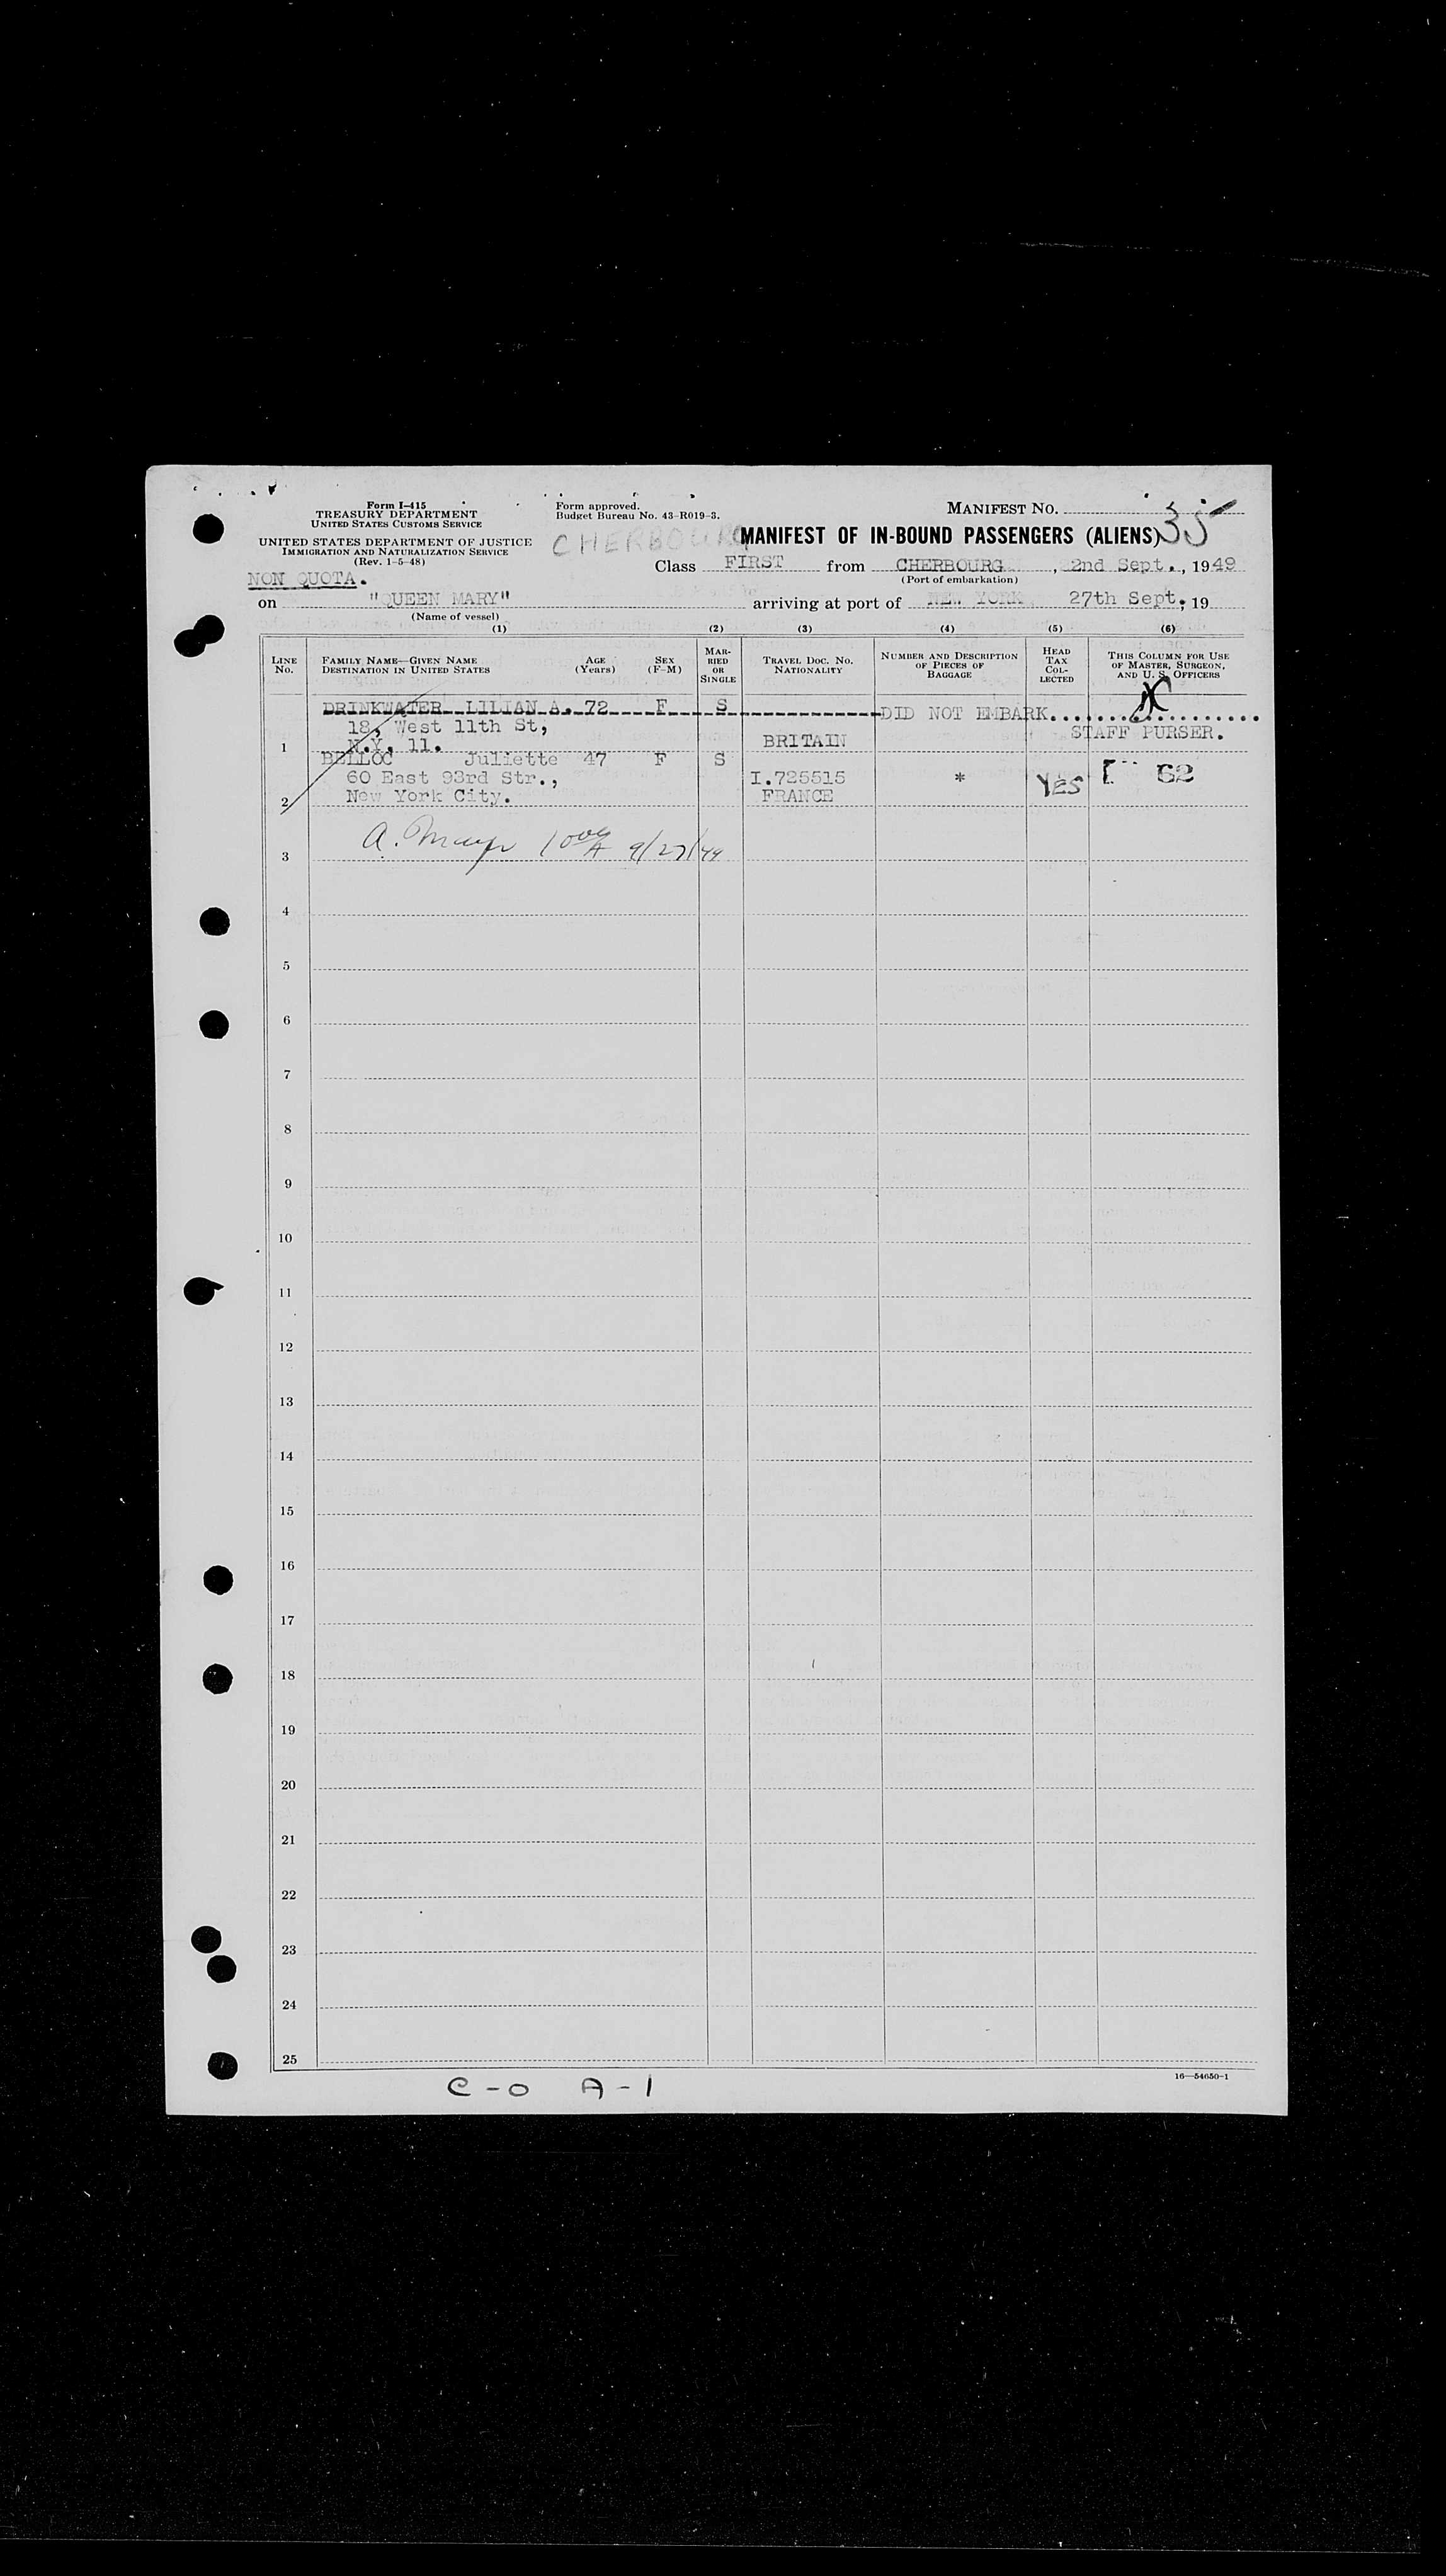 Form I-415
TREASURY DEPARTMENT
UNITED STATES CUSTOMS SERVICE
UNITED STATES DEPARTMENT OF JUSTICE
IMMIGRATION AND NATURALIZATION SERVICE
(Rev. 1-5-48)
Form approved.
Budget Bureau No. 43-R019-3.
MANIFEST NO.
35
CHERBOURG
MANIFEST OF IN-BOUND PASSENGERS (ALIENS)
Class FIRST from CHERBOURG, 22nd Sept., 1949
(Port of embarkation)
NON QUOTA.
on "QUEEN MARY" arriving at port of NEW YORK 27th Sept., 19
(Name of vessel)
(1) (2) (3) (4) (5) (6)
LINE No. FAMILY NAME—GIVEN NAME DESTINATION IN UNITED STATES AGE (Years) SEX (F-M) MARRIED OR SINGLE TRAVEL DOC. NO. NATIONALITY NUMBER AND DESCRIPTION OF PIECES OF BAGGAGE HEAD TAX COLLECTED THIS COLUMN FOR USE OF MASTER, SURGEON, AND U. S. OFFICERS
DRINKWATER LILIAN A. 72 F S DID NOT EMBARK
18, West 11th St, STAFF PURSER.
1 N.Y. 11. BRITAIN
BELLOC Juliette 47 F S
60 East 93rd Str., I.725515 * YES 62
2 New York City. FRANCE
3 A. 9/27/49
4
5
6
7
8
9
10
11
12
13
14
15
16
17
18
19
20
21
22
23
24
25
C-0 A-1
16—54650-1